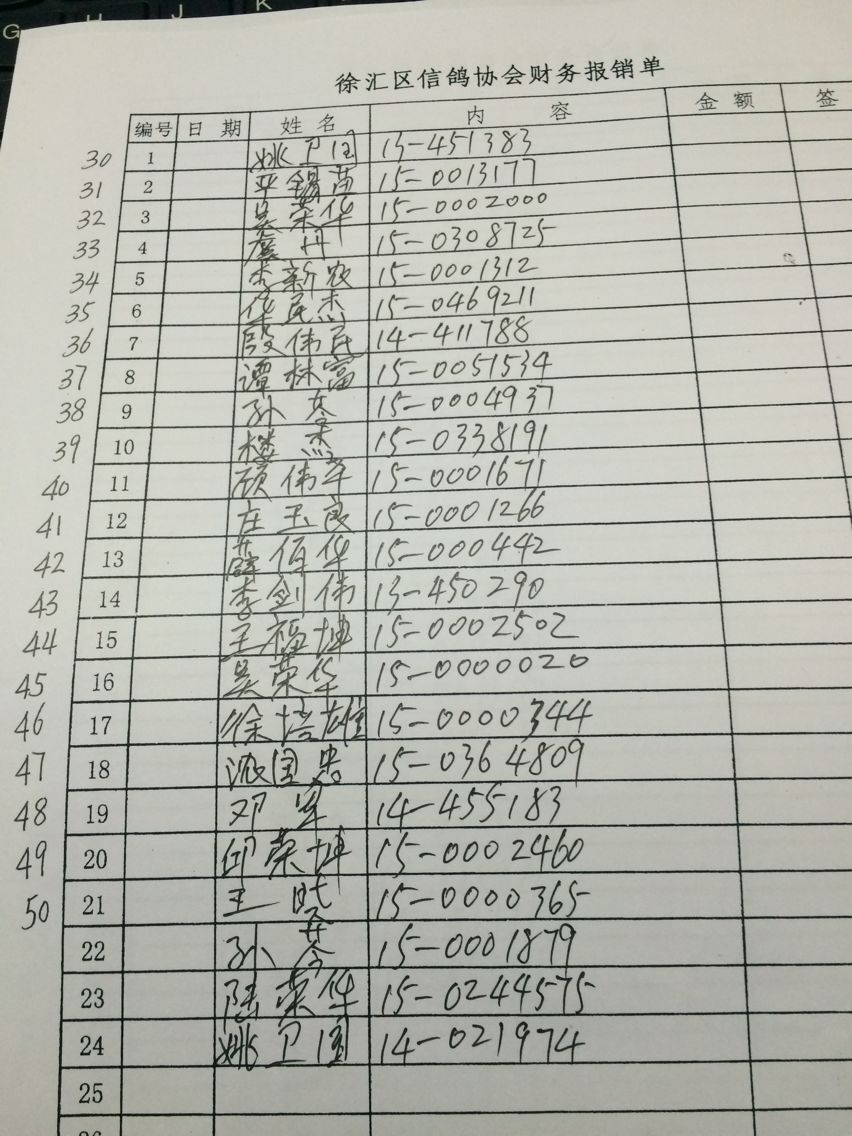 G H J K
徐汇区信鸽协会财务报销单
编号 日 期 姓 名 内 容 金 额 签
30 1 姚卫国 13-451383
31 2 平锡苗 15-0013177
32 3 吴荣华 15-0002000
33 4 丹 15-0308725
34 5 李新农 15-0001312
35 6 民杰 15-0469211
36 7 段伟民 14-411788
37 8 谭林富 15-0051534
38 9 孙 15-0004937
39 10 楼杰 15-0338191
40 11 顾伟军 15-0001671
41 12 庄玉良 15-0001266
42 13 华 15-000442
43 14 李剑伟 13-450290
44 15 王福坤 15-0002502
45 16 吴荣华 15-0000020
46 17 徐培雄 15-0000344
47 18 国忠 15-0364809
48 19 邓军 14-455183
49 20 邱荣坤 15-0002460
50 21 王 15-0000365
22 孙 15-0001879
23 陆荣华 15-0244575
24 姚卫国 14-021974
25
26